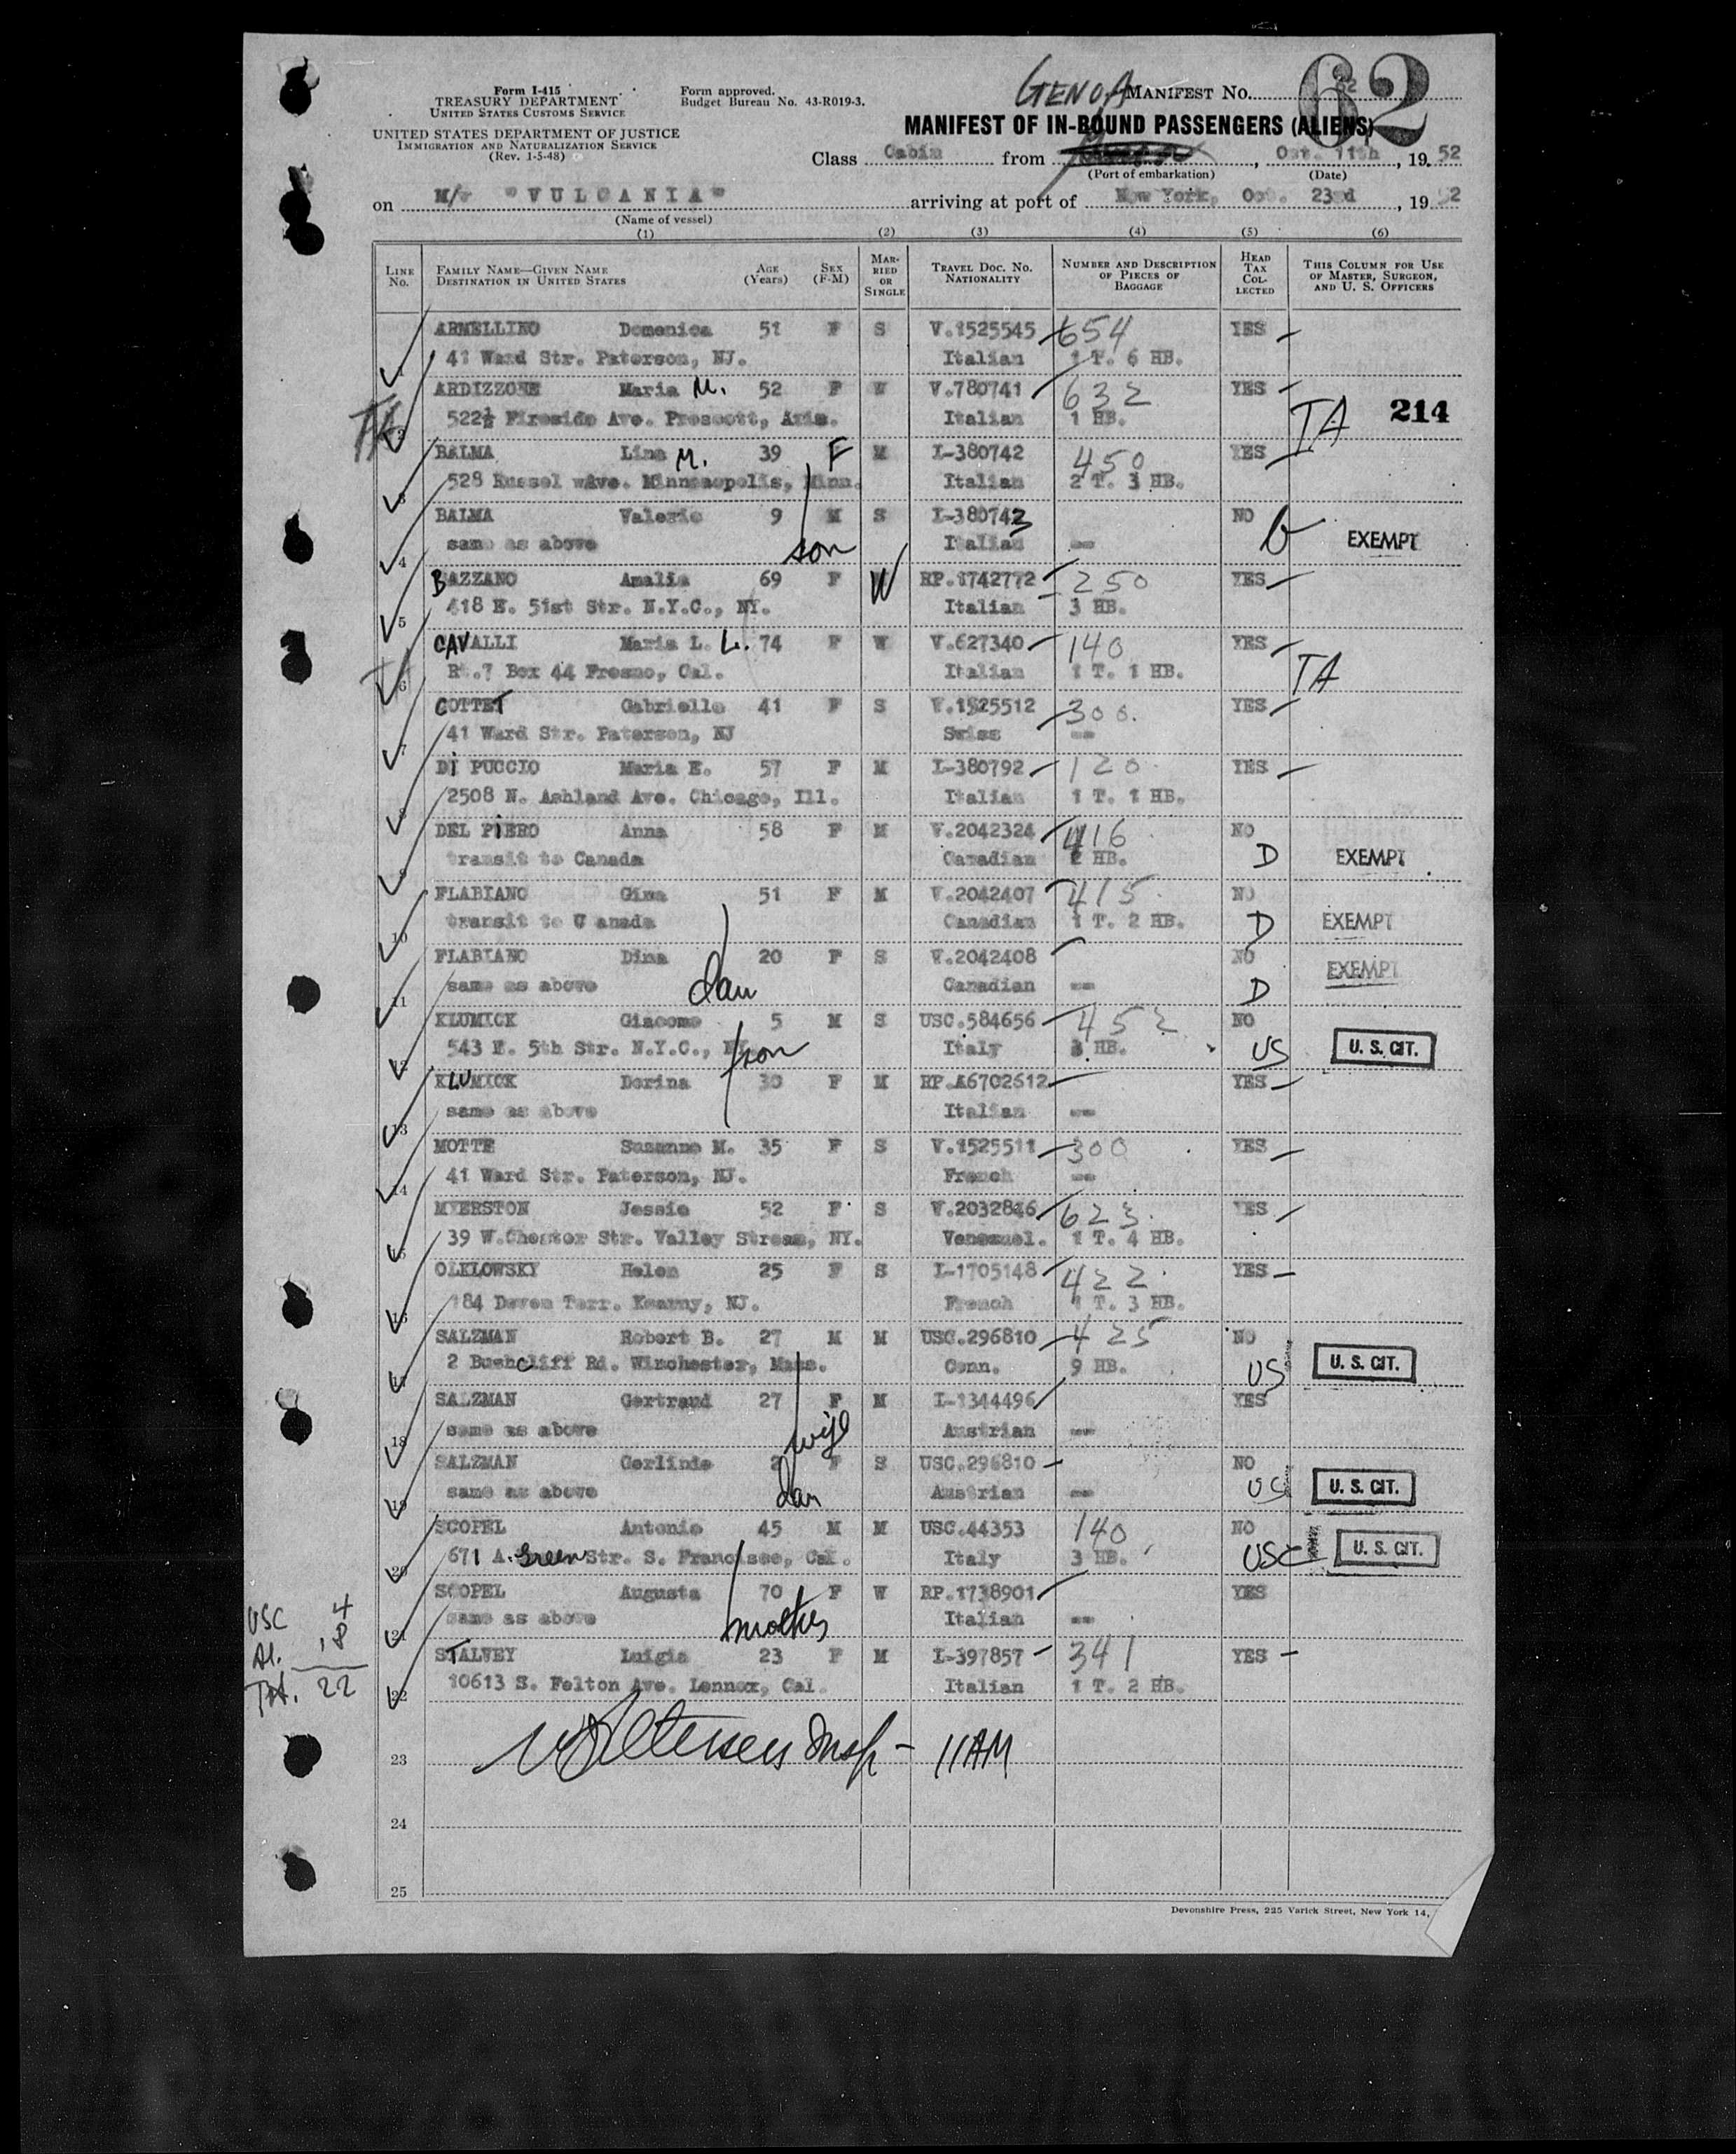 Form I-415
TREASURY DEPARTMENT
UNITED STATES CUSTOMS SERVICE
UNITED STATES DEPARTMENT OF JUSTICE
IMMIGRATION AND NATURALIZATION SERVICE
(Rev. 1-5-48)
Form approved.
Budget Bureau No. 43-R019-3.
GENOA MANIFEST No. 62
MANIFEST OF IN-BOUND PASSENGERS (ALIENS)
Class Cabin from , Oct. 11th, 1952
(Port of embarkation) (Date)
on M/v "VULCANIA" arriving at port of New York, Oct. 23rd, 1952
(Name of vessel)
(1) (2) (3) (4) (5) (6)
LINE No. FAMILY NAME—GIVEN NAME DESTINATION IN UNITED STATES AGE (Years) SEX (F-M) MARRIED OR SINGLE TRAVEL DOC. No. NATIONALITY NUMBER AND DESCRIPTION OF PIECES OF BAGGAGE HEAD TAX COLLECTED THIS COLUMN FOR USE OF MASTER, SURGEON, AND U. S. OFFICERS
ARMELLINO Domenica 51 F S V.1525545 654 YES
1 41 Ward Str. Paterson, NJ. Italian 1 T. 6 HB.
ARDIZZONE Maria M. 52 F W V.780741 632 YES
TA 2 522½ Fireside Ave. Prescott, Aris. Italian 1 HB. TA 214
BALMA Lina M. 39 F M I-380742 450 YES
3 528 Russel wAve. Minneapolis, Minn. Italian 2 T. 3 HB.
BALMA Valerio 9 M S I-380743 NO
4 same as above son Italian -- EXEMPT
BAZZANO Amalia 69 F W RP.1742772 250 YES
5 418 E. 51st Str. N.Y.C., NY. Italian 3 HB.
CAVALLI Maria L. L. 74 F W V.627340 140 YES
TA 6 Rt.7 Box 44 Fresno, Cal. Italian 1 T. 1 HB. TA
COTTET Gabrielle 41 F S V.1525512 300. YES
7 41 Ward Str. Paterson, NJ Swiss --
Di PUCCIO Maria E. 57 F M I-380792 120 YES
8 2508 N. Ashland Ave. Chicago, Ill. Italian 1 T. 1 HB.
DEL PiERO Anna 58 F M V.2042324 416 NO
9 transit to Canada Canadian 2 HB. D EXEMPT
FLABIANO Gina 51 F M V.2042407 415 NO
10 transit to C anada Canadian 1 T. 2 HB. D EXEMPT
FLABIANO Dina 20 F S V.2042408 NO
11 same as above dau Canadian -- D EXEMPT
KLUMICK Giacomo 5 M S USC.584656 452 NO
12 543 E. 5th Str. N.Y.C., NY. son Italy 3 HB. US U. S. CIT.
KLUMICK Dorina 30 F M RP.A6702612 YES
13 same as above Italian --
MOTTE Suzanne M. 35 F S V.1525511 300 YES
14 41 Ward Str. Paterson, NJ. French --
MYERSTON Jessie 52 F S V.2032846 623 YES
15 39 W.Chester Str. Valley Stream, NY. Venezuel. 1 T. 4 HB.
OLKLOWSKY Helen 25 F S I-1705148 422 YES
16 184 Devon Terr. Kearny, NJ. French 1 T. 3 HB.
SALZMAN Robert B. 27 M M USC.296810 425 NO
17 2 Bushcliff Rd. Winchester, Mass. Conn. 9 HB. US U. S. CIT.
SALZMAN Gertraud 27 F M I-1344496 YES
18 same as above wife Austrian --
SALZMAN Gerlinde 2 F S USC.296810 NO
19 same as above dau Austrian -- US U. S. CIT.
SCOPEL Antonio 45 M M USC.44353 140 NO
20 671 A. Green Str. S. Francisco, Cal. Italy 3 HB. USC U. S. CIT.
SCOPEL Augusta 70 F W RP.1738901 YES
21 same as above mother Italian --
STALVEY Luigia 23 F M I-397857 341 YES
22 10613 S. Felton Ave. Lennox, Cal. Italian 1 T. 2 HB.
USC 4
Al. 18
Tot. 22
23 Insp - 11AM
24
25
Devonshire Press, 225 Varick Street, New York 14,